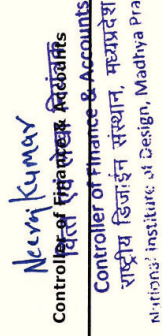 Neeraj Kumar
Controller of Finance & Accounts
वित्त एवं लेखा नियंत्रक
Controller of Finance & Accounts
राष्ट्रीय डिज़ाईन संस्थान, मध्यप्रदेश
National Institute of Design, Madhya Pra